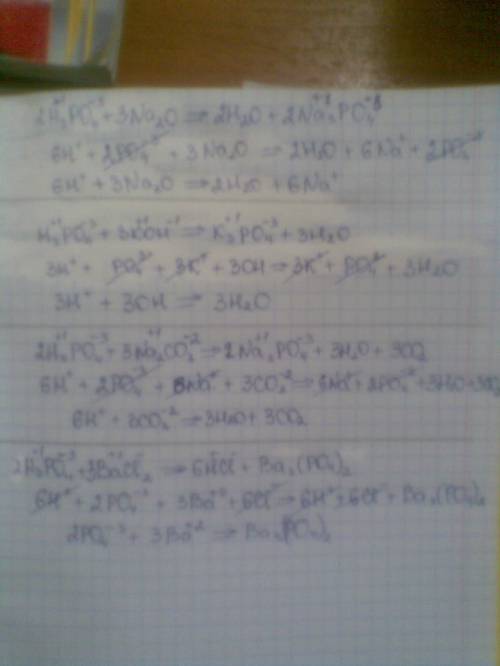 2H₃⁺¹PO₄⁻³ + 3Na₂O ⇒ 2H₂O + 2Na₃⁺¹PO₄⁻³
6H⁺ + 2PO₄⁻³ + 3Na₂O ⇒ 2H₂O + 6Na⁺ + 2PO₄⁻³
6H⁺ + 3Na₂O ⇒ 2H₂O + 6Na⁺
H₃⁺¹PO₄⁻³ + 3K⁺¹OH⁻¹ ⇒ K₃⁺¹PO₄⁻³ + 3H₂O
3H⁺ + PO₄⁻³ + 3K⁺ + 3OH ⇒ 3K⁺ + PO₄⁻³ + 3H₂O
3H⁺ + 3OH ⇒ 3H₂O
2H₃⁺¹PO₄⁻³ + 3Na₂⁺¹CO₃⁻² ⇒ 2Na₃⁺¹PO₄⁻³ + 3H₂O + 3CO₂
6H⁺ + 2PO₄⁻³ + 6Na⁺ + 3CO₃⁻² ⇒ 6Na⁺ + 2PO₄⁻³ + 3H₂O + 3CO₂
6H⁺ + 3CO₃⁻² ⇒ 3H₂O + 3CO₂
2H₃⁺¹PO₄⁻³ + 3BaCl₂ ⇒ 6HCl + Ba₃(PO₄)₂
6H⁺ + 2PO₄⁻³ + 3Ba⁺² + 6Cl⁻ ⇒ 6H⁺ + 6Cl⁻ + Ba₃(PO₄)₂
2PO₄⁻³ + 3Ba⁺² ⇒ Ba₃(PO₄)₂